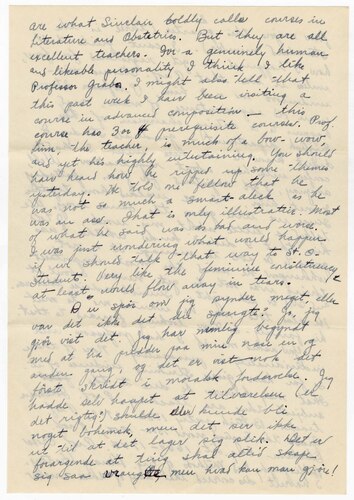 are what Sinclair boldly calls courses in
Literature and Obstetrics. But they are all
excellent teachers. For a genuinely human
and likeable personality I think I like
Professor Grabo. I might also tell that
this past week I have been visiting a
course in advanced composition — this
course has 3 or 4 prerequisite courses. Prof
the teacher, is much of a bow-wow,
and yet his highly entertaining. You should
have heard how he ripped up some themes
yesterday. He told one fellow that he
was not so much a smart-aleck as he
was an ass. That is only illustrative. Most
of what he said was as bad and worse.
I was just wondering what would happen
if we should talk that way to St. O.
students. Very like the feminine constituency
at least would flow away in tears.
Du spör om jeg synder meget, eller
var det ikke det du spurgte? Jo, jeg
gjör vist det. Jeg har nemlig begyndt
med at ha pudder paa min nase en og
anden gang, og det er vist nok det
förste skridt i moralsk fordærvelse. Jeg
hadde selv haapet at tilværelsen (er
det rigtig?) skulde eller kunde bli
noget bohemsk, men det ser ikke
ut til at det lager sig slik. Det er
forargende at ting skal altid skape
sig saa men hvad kan man gjöre!